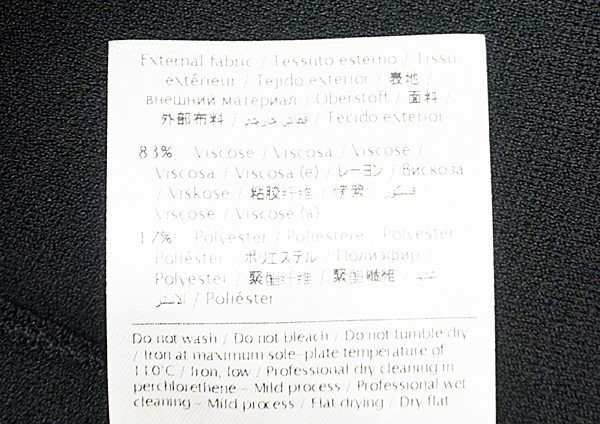 External fabric / Tessuto esterno / Tissu
extérieur / Tejido exterior / 表地 /
внешний материал / Oberstoff / 面料 /
外部布料 / قماش خارجي / Tecido exterior
83% Viscose / Viscosa / Viscose /
Viscosa / Viscosa (e) / レーヨン / Вискоза
/ Viskose / 粘胶纤维 / / فسكوز /
Viscose / Viscose (a)
17% Polyester / Poliestere / Polyester /
Poliéster / ポリエステル / Полиэфир /
Polyester / 聚酯纤维 / 聚酯纖維 /
/ Poliéster
Do not wash / Do not bleach / Do not tumble dry
/ Iron at maximum sole-plate temperature of
110°C / Iron, low / Professional dry cleaning in
perchlorethene – Mild process / Professional wet
cleaning – Mild process / Flat drying / Dry flat